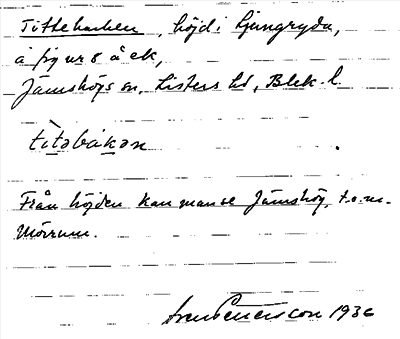 Tittebacken, höjd i Ljungryda,
å fig nr 8 å ek,
Jämshögs sn, Listers hd, Blek. l.
titəbàkən
Från höjden kan man se Jämshög, t.o.m.
Mörrum.
1936